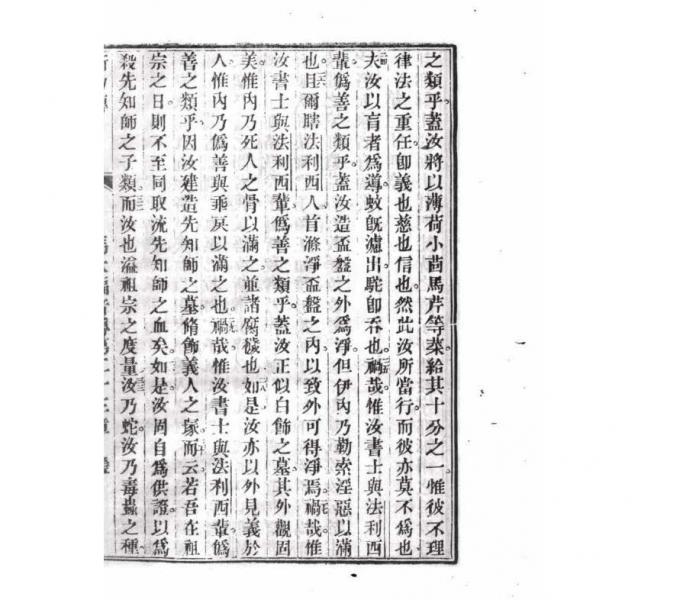 之類乎蓋汝將以薄荷小茴馬芹等菜給其十分之一惟彼不理
律法之重任卽義也慈也信也然此汝所當行而彼亦莫不爲也
夫汝以盲者爲導蚊旣濾出駝卽吞也禍哉惟汝書士與法利西
輩僞善之類乎蓋汝造盃盤之外爲淨但伊內乃勒索淫惡以滿
也且爾瞎法利西人首滌淨盃盤之內以致外可得淨焉禍哉惟
汝書士與法利西輩僞善之類乎蓋汝正似白飾之墓其外觀固
美惟內乃死人之骨以滿之並諸腐穢也如是汝亦以外見義於
人惟內乃僞善與乖戾以滿之也禍哉惟汝書士與法利西輩僞
善之類乎因汝建造先知師之墓脩飾義人之塚而云若吾在祖
宗之日則不至同取流先知師之血矣如是汝固自爲供證以爲
殺先知師之子類而汝也溢祖宗之度量汝乃蛇汝乃毒蟲之種